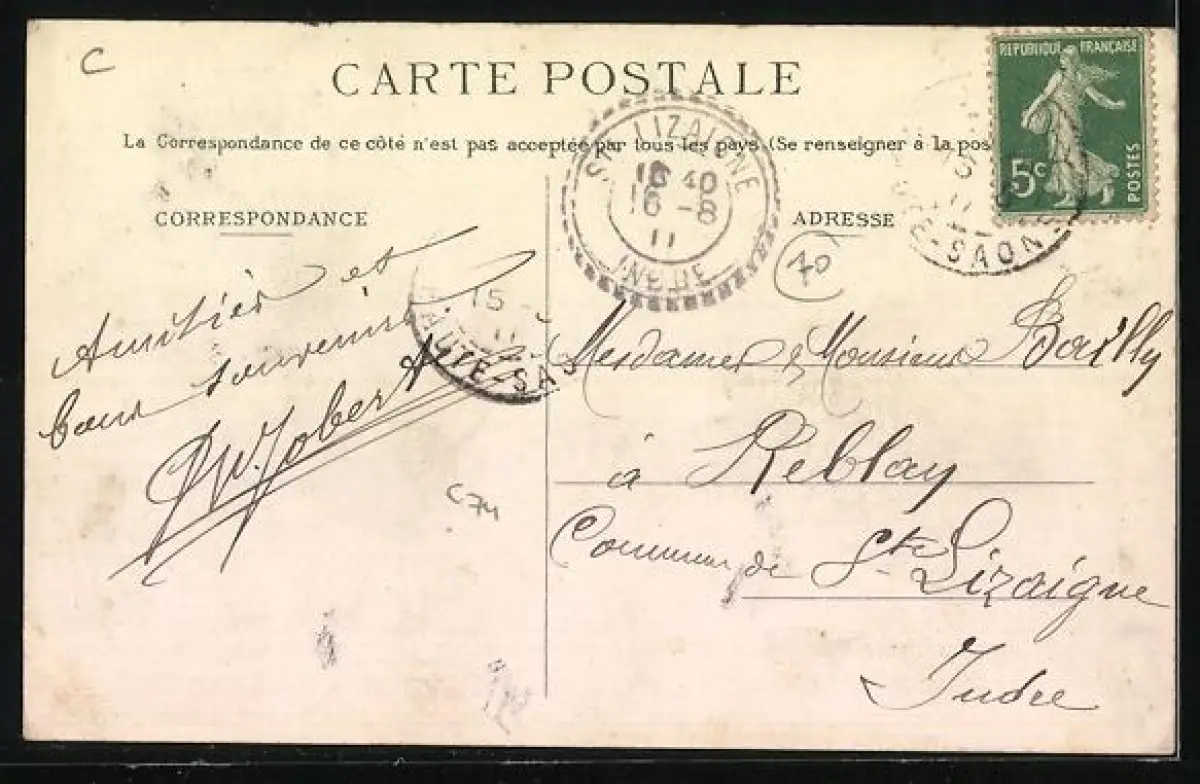 C
CARTE POSTALE
La Correspondance de ce côté n'est pas acceptée par tous les pays (Se renseigner à la pos
RÉPUBLIQUE FRANÇAISE
5c
POSTES
STE LIZAIGNE
18 40
16 -8
11
INDRE
CORRESPONDANCE
ADRESSE
70
-SAÔN
15
11
HAUTE-SAÔ
Amitiés et
bons souvenirs.
Jobert
C74
Mesdames & Monsieur Bailly
à Reblay
Commune de Ste Lizaigne
Indre